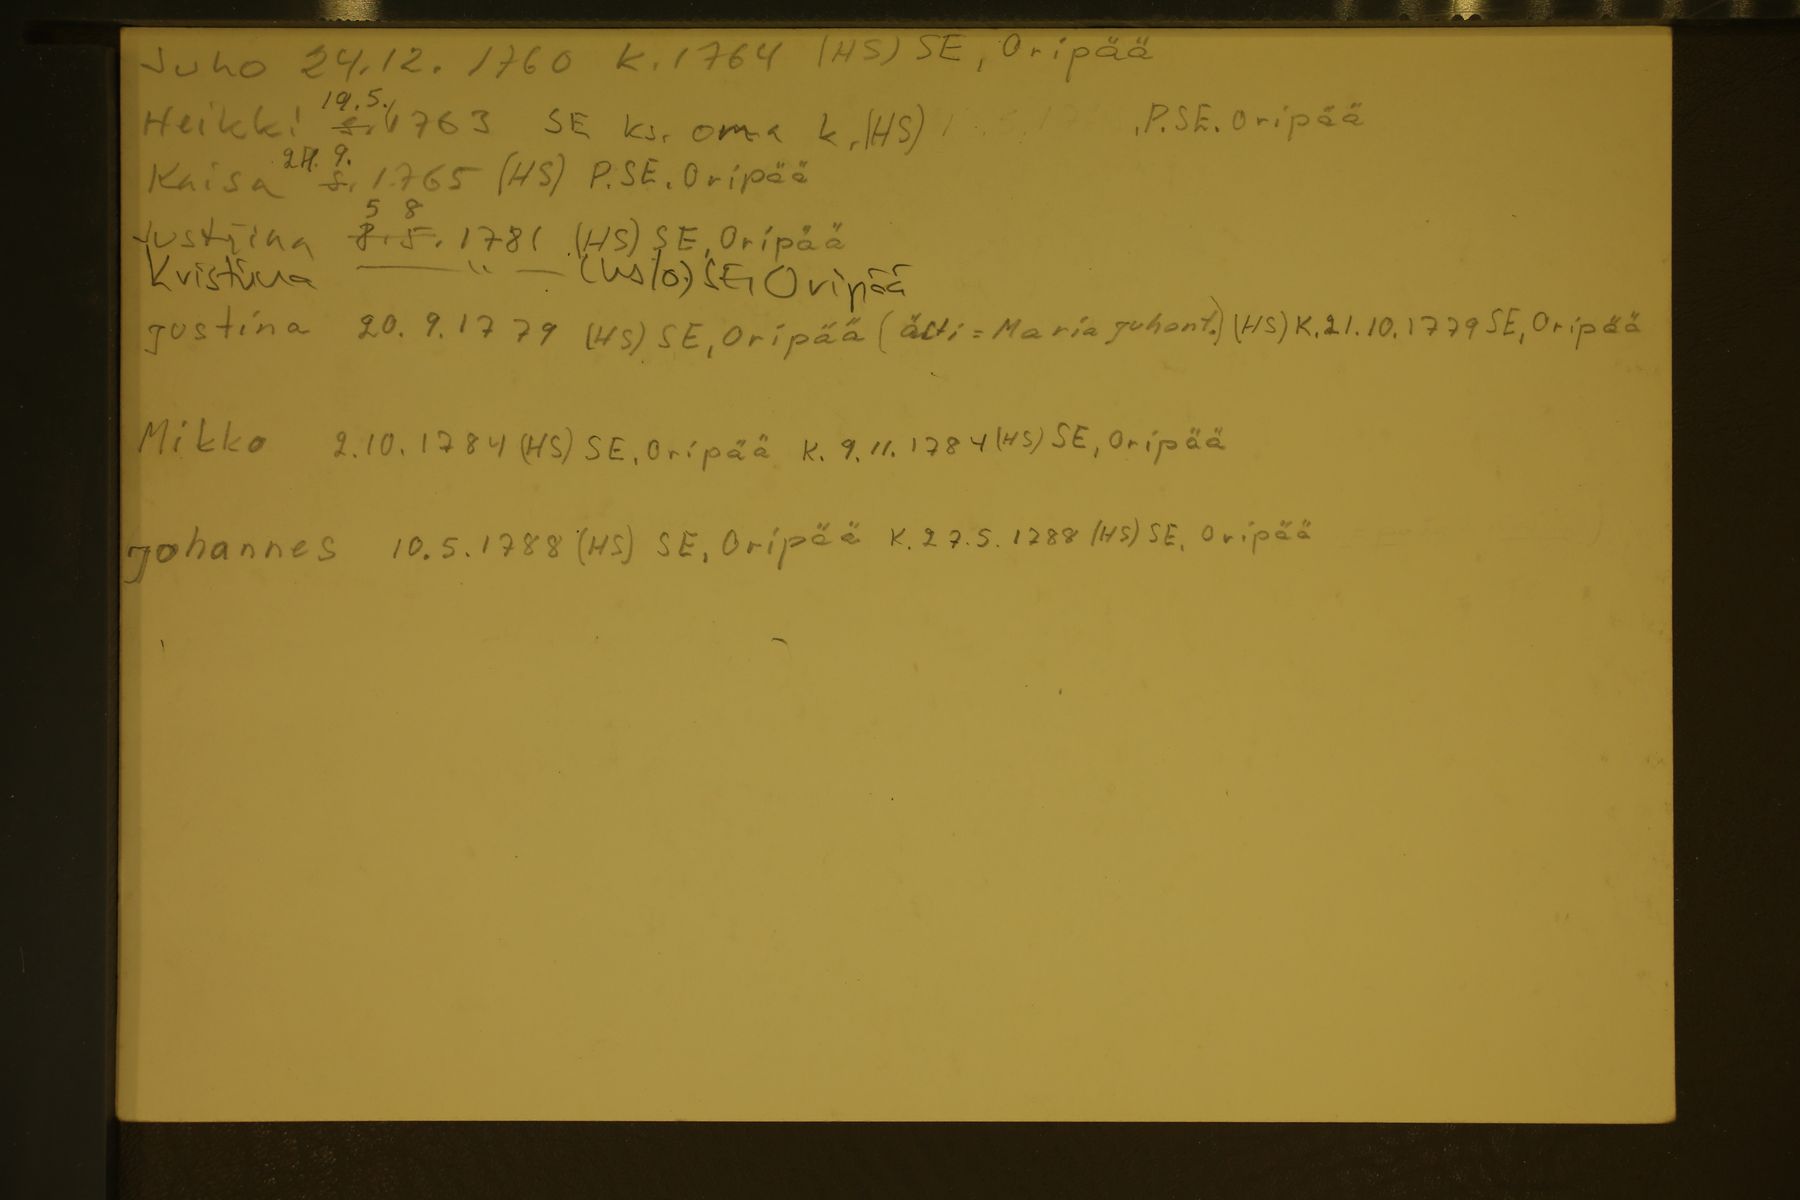 Juho 24.12. 1760 K. 1764 (HS) SE, Oripää
19.5.
Heikki s. 1763 SE ks. oma k. (HS) .P.SE. Oripää
24. 9.
Kaisa s. 1765 (HS) P.SE. Oripää
5 8
Justiina 8.5. 1781 (HS) SE, Oripää
Kristiina —— " — (HS/O) SE, Oripää
Justina 20. 9. 1779 (HS) SE, Oripää (äiti = Maria Juhont.) (HS) K. 21.10.1779 SE, Oripää
Mikko 2.10. 1784 (HS) SE, Oripää K. 9.11. 1784 (HS) SE, Oripää
Johannes 10.5.1788 (HS) SE, Oripää K. 27.5. 1788 (HS) SE, Oripää